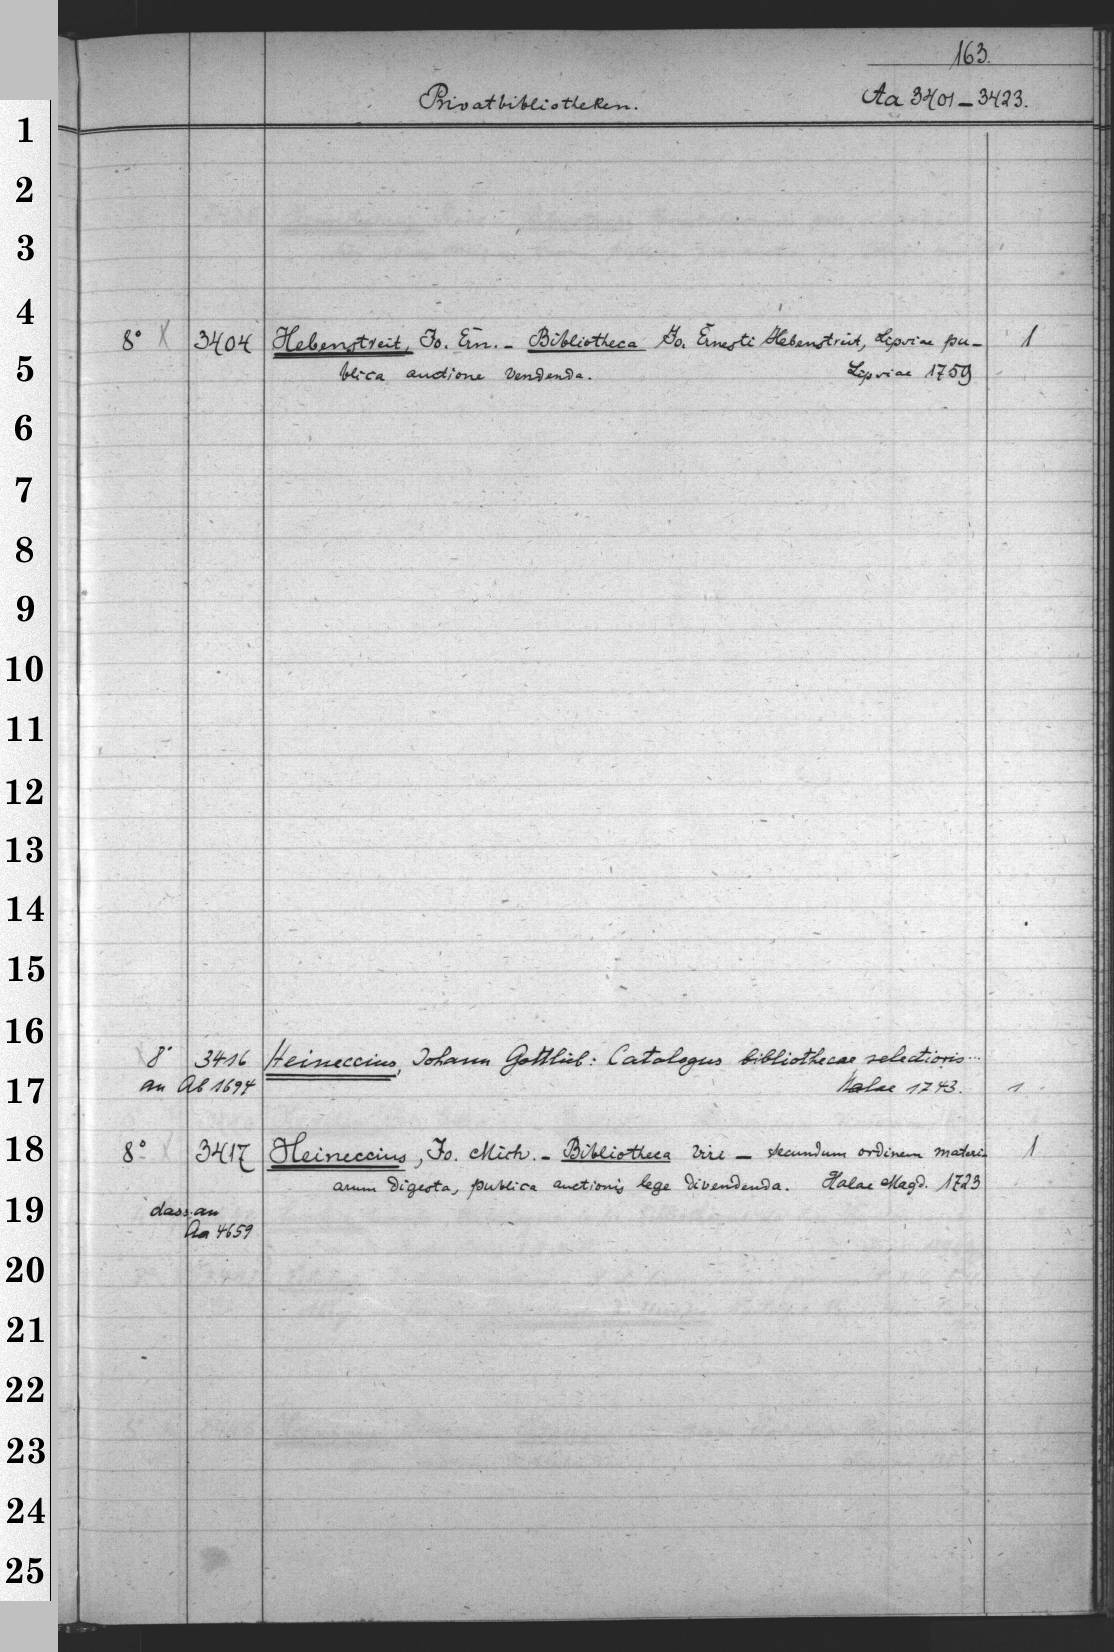 163.
Privatbibliotheken. Aa 3401-3423.
1
2
3
4
8° X 3404 Hebenstreit, Jo. Ern. - Bibliotheca Jo. Ernesti Hebenstreit, Lipsiae pu- 1
5
blica auctione vendenda. Lipsiae 1759
6
7
8
9
10
11
12
13
14
15
16
8° 3416 Heineccius, Johann Gottlieb: Catalogus bibliothecae selectioris...
17
an Ab 1694 Halae 1743. 1
18
8° X 3417 Heineccius, Jo. Mich. - Bibliotheca viri - secundum ordinem materi- 1
arum digesta, publica auctionis lege divendenda. Halae Magd. 1723
19
dass. an
Aa 4659
20
21
22
23
24
25